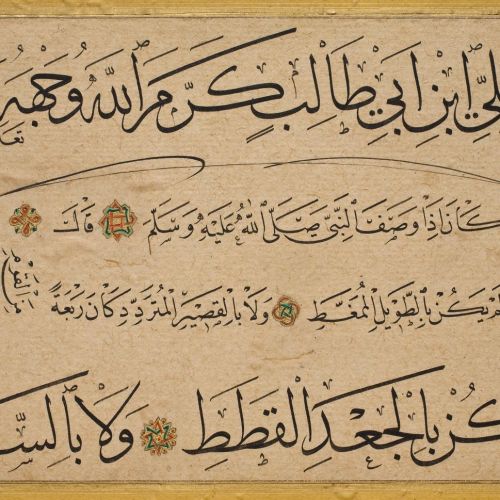 لِيِّ ابْنِ اَبِي طَالِبٍ كَرَّمَ اللّٰهُ وَجْهَهُ
تعا
كَانَ اِذَا وَصَفَ النَّبِيَّ صَلَّى اللّٰهُ عَلَيْهِ وَسَلَّمَ قَالَ
لَمْ يَكُنْ بِالطَّوِيلِ الْمُمَغَّطِ وَلَا بِالْقَصِيرِ الْمُتَرَدِّدِ كَانَ رَبْعَةً
مِنَ الْقَوْمِ
كُنْ بِالْجَعْدِ الْقَطَطِ وَلَا بِالسَّ